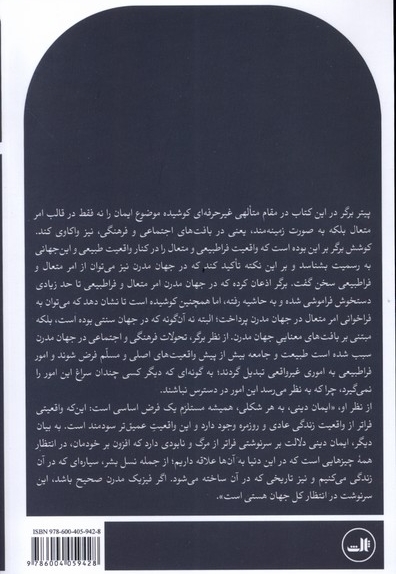 پیتر برگر در این کتاب در مقام متألهی غیرحرفه‌ای کوشیده موضوع ایمان را نه فقط در قالب امر
متعال بلکه به صورت زمینه‌مند، یعنی در بافت‌های اجتماعی و فرهنگی، نیز واکاوی کند.
کوشش برگر بر این بوده است که واقعیت فراطبیعی و متعال را در کنار واقعیت طبیعی و این‌جهانی
به رسمیت بشناسد و بر این نکته تأکید کند که در جهان مدرن نیز می‌توان از امر متعال و
فراطبیعی سخن گفت. برگر اذعان کرده که در جهان مدرن امر متعال و فراطبیعی تا حد زیادی
دستخوش فراموشی شده و به حاشیه رفته، اما همچنین کوشیده است تا نشان دهد که می‌توان به
فراخوانی امر متعال در جهان مدرن پرداخت؛ البته نه آن‌گونه که در جهان سنتی بوده است، بلکه
مبتنی بر بافت‌های معنایی جهان مدرن. از نظر برگر، تحولات فرهنگی و اجتماعی در جهان مدرن
سبب شده است طبیعت و جامعه بیش از پیش واقعیت‌های اصلی و مسلّم فرض شوند و امور
فراطبیعی به اموری غیرواقعی تبدیل گردند؛ به گونه‌ای که دیگر کسی چندان سراغ این امور را
نمی‌گیرد، چرا که به نظر می‌رسد این امور در دسترس نباشند.
از نظر او، «ایمان دینی، به هر شکلی، همیشه مستلزم یک فرض اساسی است: این‌که واقعیتی
فراتر از واقعیت زندگی عادی و روزمره وجود دارد و این واقعیت عمیق‌تر سودمند است. به بیان
دیگر، ایمان دینی دلالت بر سرنوشتی فراتر از مرگ و نابودی دارد که افزون بر خودمان، در انتظار
همهٔ چیزهایی است که در این دنیا به آن‌ها علاقه داریم؛ از جمله نسل بشر، سیاره‌ای که در آن
زندگی می‌کنیم و نیز تاریخی که در آن ساخته می‌شود. اگر فیزیک مدرن صحیح باشد، این
سرنوشت در انتظار کل جهان هستی است».
ISBN 978-600-405-942-8
9786004059428
ثالث